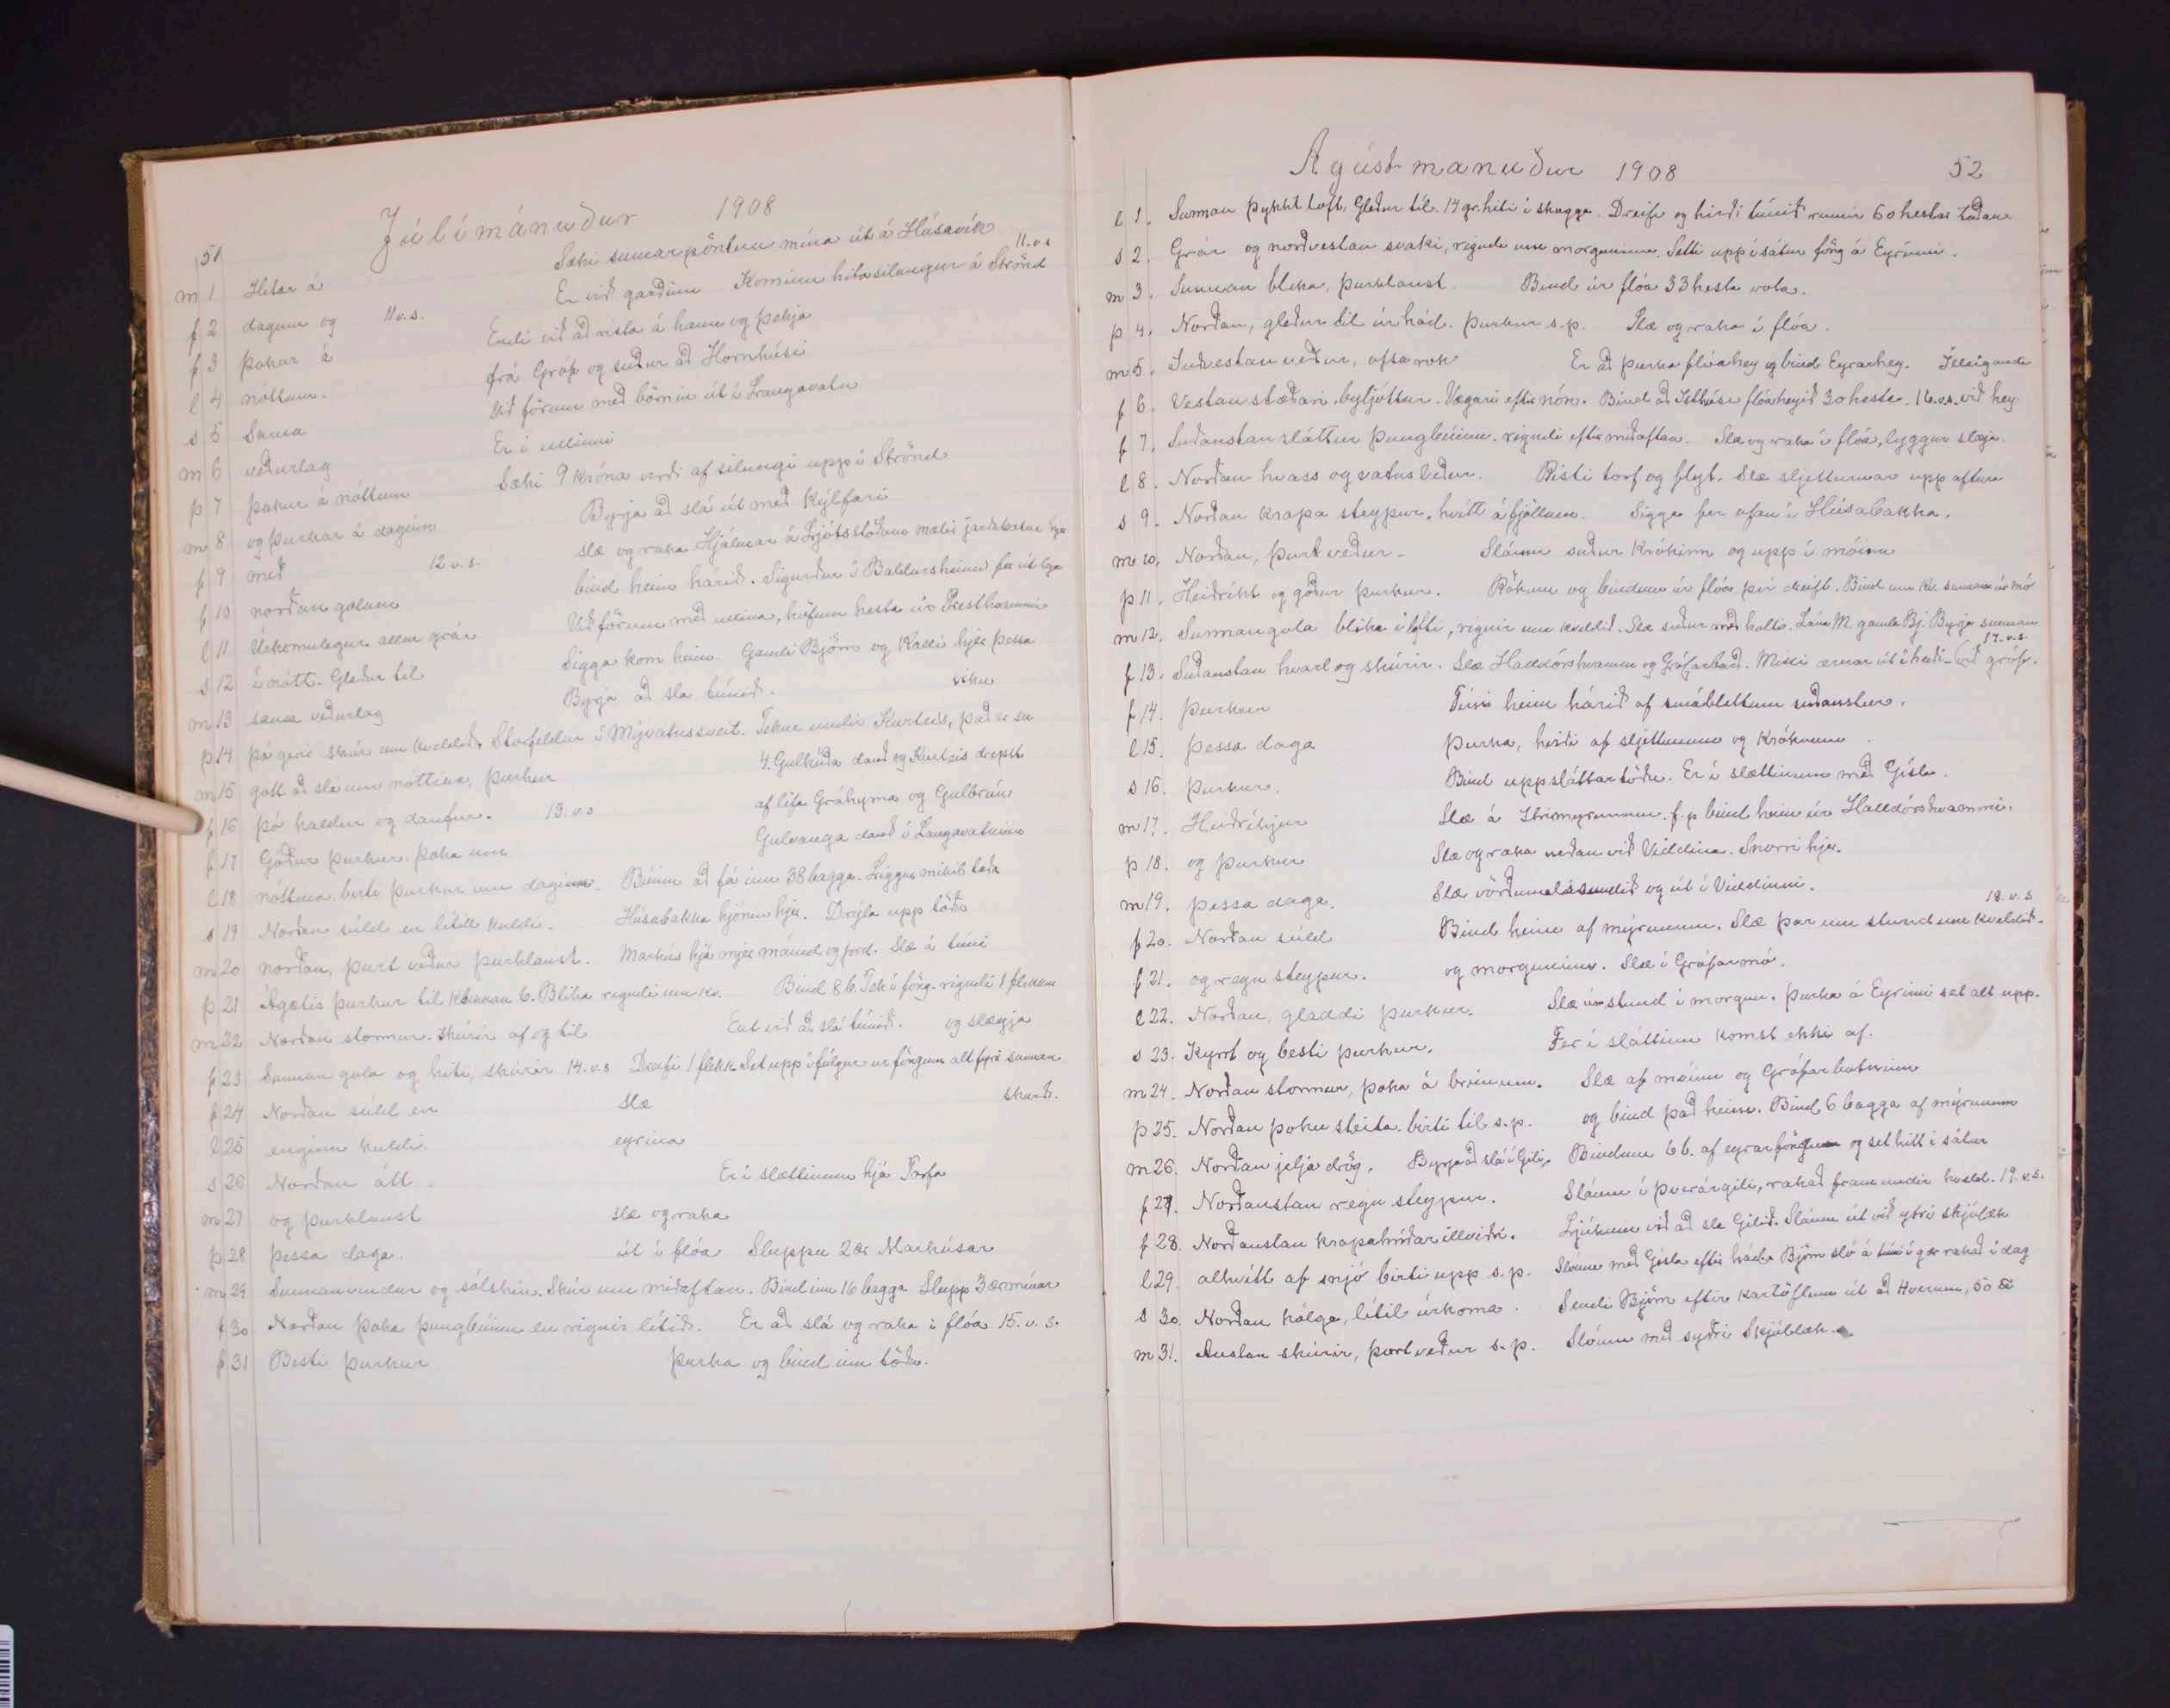 51
Júlímánuður 1908
m 1 Hitar á Sæki sumarpöntun mína út á Húsavík
f 2 dagum og 11 v.s. Er við garðinn Kominn hitasilungur á Strönd 11. v s
f 3 þokur á Endi við að rista á hann og þekja
l 4 nóttum. frá Gróf og suður að Hornhúsi
s 5 Sama Við förum með börnin út í Langavatn
m 6 veðurlag Er í ullinni
þ 7 þokur á nóttum Sæki 9 króna virði af silungi upp í Strönd
m 8 og þurkar á daginn Byrja að slá út með Kýlfari
f 9 með 12 v.s. slæ og raka Hjálmar á Ljótsstöðum mælir jarðabætur hjer
f 10 norðan golum bind heim hárið. Sigurður í Baldursheimi fer út lega
l 11 Úrkomulegur allur grár Við förum með ullina, höfum hesta úr Presthvammi
s 12 í nótt. Gleður til Sigga kom heim Gamli Björn og Kalli hjer þessa
m 13 sama veðurlag Byrja að sla túnið. viku
þ 14 þó gerir skúr um kveldið, Stórfeldur í Mývatnssveit. Tekur undir Kurteis, það er su
m 15 gott að slá um nóttina, þurkur 4. Gulhúða dauð og Kurteis drepst
f 16 þó kaldur og daufur. 13. v.s af lifa Gráhyrna og Gulbrún
f 17 Góður þurkur. þoka um Gulvanga dauð í Langavatninu
l 18 nóttina. birti þurkur um daginn. Búinn að fá inn 38 bagga. Liggur mikil taða
s 19 Norðan súld en lítill kuldi. Húsabakka hjónin hjer. Drýla upp töðu
m 20 norðan, þurt veður þurklaust. Markús hjá mjer mánud og fönd. Slæ á túni
þ 21 Ágætis þurkur til klukkan 6. Blika rigndi um kv. Bind 8 b. Tek í föng. rigndi 1 flekkur
m 22 Norðan stormur. skúrir af og til Ent við að slá túnið. og slægja
f 23 Sunnan gola og hiti, skúrir 14. v.s Dreifi 1 flekk Set upp í fúlgur ur föngum alt fyrir sunnan
f 24 Norðan súld en slæ skurð.
l 25 enginn kuldi. eyrina
s 26 Norðan átt. Er í slættinum hjá Torfa
m 27 og þurklaust slæ og raka
þ 28 þessa daga. út í flóa Sluppu 2 ær Markúsar
m 29 Sunnanvindur og sólskin. Skúr um miðaftan. Bind inn 16 bagga Slupp 3 ær mínar
f 30 Norðan þoka þungbúinn en rignir lítið. Er að slá og raka í flóa 15. v. s.
f 31 Besti þurkur þurka og bind inn töðu.
Agústmanuður 1908 52
l 1. Sunnan þykkt loft, Gleður til. 14 gr. hiti í skugga. Dreifi og hirði túnið rúmir 60 hestar taðan
s 2. Grár og norðvestan svaki, rigndi um morguninn. Setti upp í sátur föng á Eyrinni.
m 3. Sunnan blika, þurklaust. Bind úr flóa 33 hesta vota.
þ 4. Norðan, gleður til úr hád. þurkur s.p. Slæ og raka í flóa.
m 5. Suðvestan veður, ofsa rok Er að þurka flóahey og bind Eyrarhey.
f 6. Vestanstæðari, byljóttur. Vægari eftir nón. Bind að Isthúsi flóaheyið 30 hesta. 16. v.s. við hey
f 7. Suðaustan sláttur þungbúinn. rigndi eftir miðaftan. Slæ og raka í flóa, lyggur slægja.
l 8. Norðan hvass og vatnsveður. Risti torf og flyt. Slæ sljetturnar upp aftur
s 9. Norðan krapa steypur, hvítt á fjöllum. Sigga fer ofan í Húsabakka.
m 10. Norðan, þurt veður. Sláum suður Krókinn og upp í móinn
þ 11. Heiðríkt og góður þurkur. Rökum og bindum úr flóa því dreift. Bind um kv. sunnan úr mó
m 12. Sunnangola blika í lofti, rignir um kveldið. Slæ suður með halla. Lána M. gamla Bj. Byrja sunnan
f 13. Suðaustan hvarl og skúrir. Slæ Halldórshvamm og Grófarbarð. Missi ærnar út í heiði við gróf. 17. v.s.
f 14. þurkur Tíni heim hárið af smáblettum suðaustur.
l 15. þessa daga þurka, hirði af sljettunum og Króknum
s 16. þurkur. Bind uppsláttartöðu. Er í slættinum með Gísla.
m 17. Heiðríkjur Slæ á Stórmyrunum. f. p bind heim úr Halldórshvammi.
þ 18. og þurkur Slæ og raka neðan við Viðdina. Snorri hjer.
m 19. þessa daga. Slæ vörðumelásundið og út í Viddinni.
f 20. Norðan súld Bind heim af mýrunum. Slæ þar um stund um kveldið. 18. v. s
f 21. og regn steypur. og morguninn. Slæ í Grófarmó.
l 22. Norðan, gladdi þurkur. Slæ um stund í morgun. þurka á Eyrinni set alt upp.
s 23. Kyrrt og besti þurkur. Fer í sláttinn komst ekki af.
m 24. Norðan stormur, þoka á brúnum. Slæ af móinn og Grófarbotninn
þ 25. Norðan þoku steita. birti til s.p. og bind það heim. Bind 6 bagga af mýrunum
m 26. Norðan jelja drög. Byrja að slá í Gili, Bindum 6 b. af eyrarföngum og set hitt í sátur
f 27. Norðaustan regn steypur. Sláum í þverárgili, rakað fram undir kveld. 19. v.s.
f 28. Norðaustan krapahríðar illviðri. Ljúkum við að sla Gilið. Sláum út við ytri skjólæk
l 29. alhvítt af snjó birti upp s.p. Slóum með Gísla eftir hád. Björn sló á túni í gær rakað í dag
s 30. Norðan kólga, lítil úrkoma. Sendi Björn eftir kartöflum út að Hverum, 50 ℔
m 31. Austan skúrir, þurt veður s.p. Slóum með syðri Skjólæk.